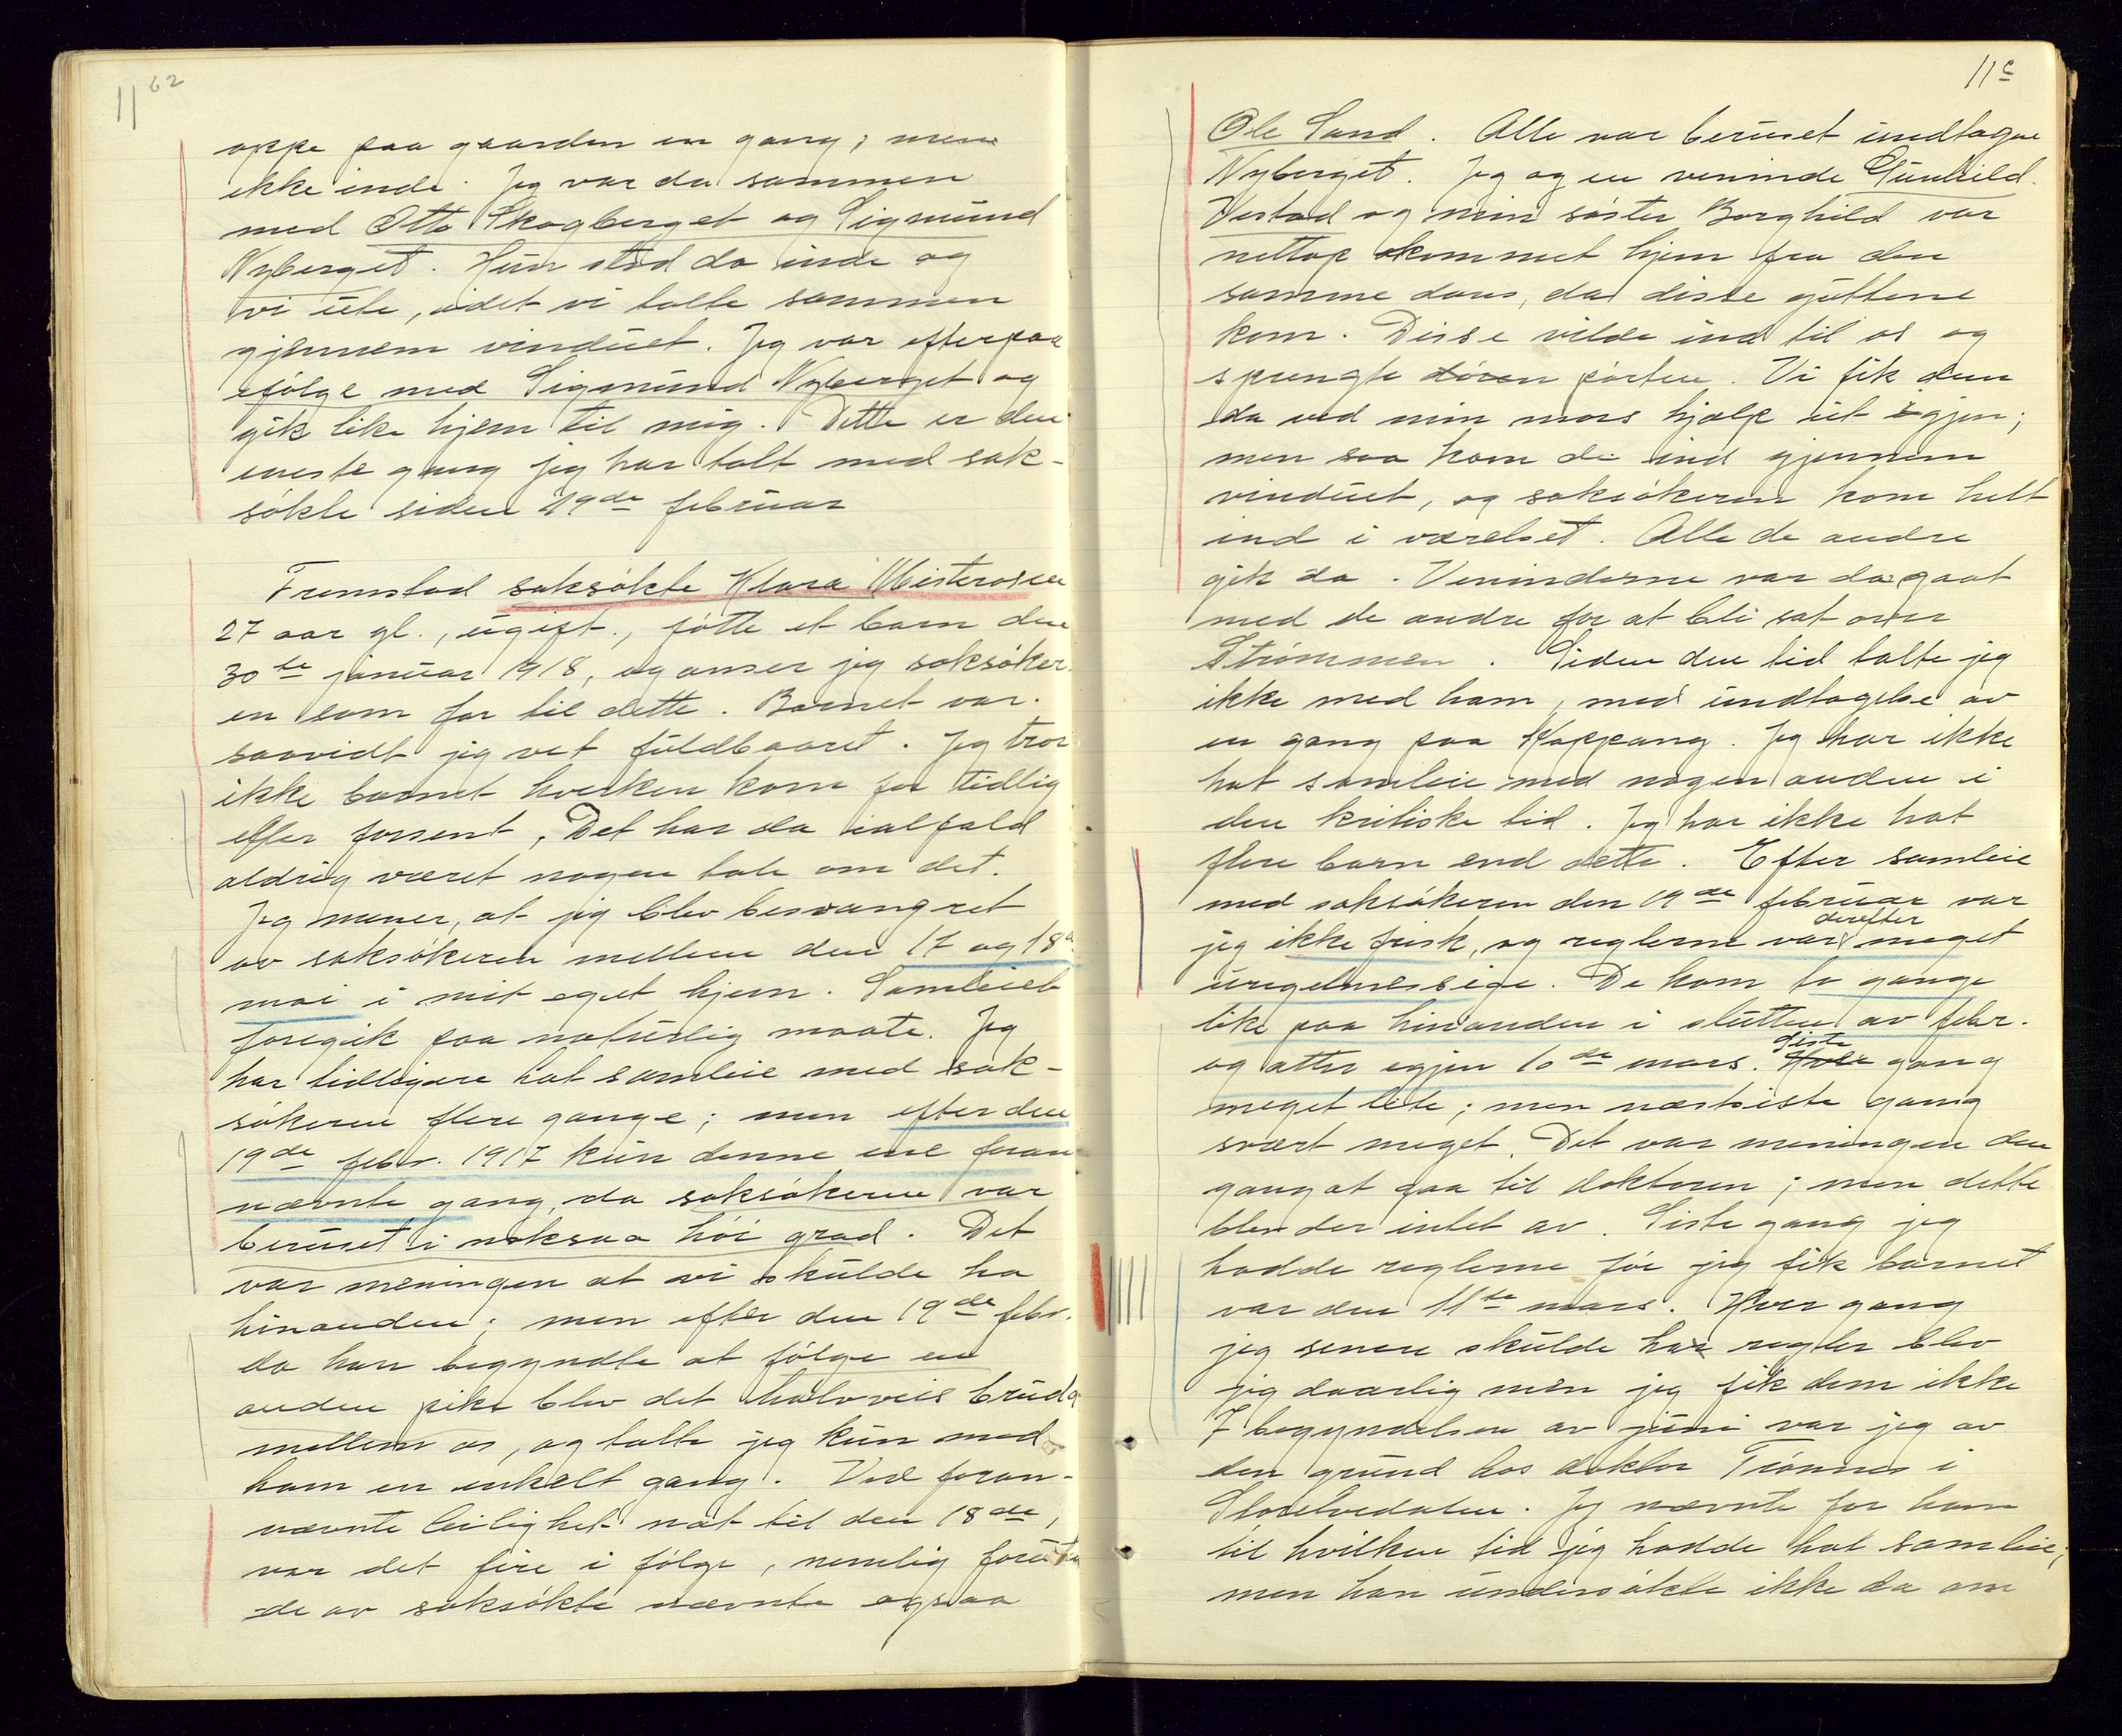 11 62
oppe paa gaarden en gang; men
ikke inde. Jeg var da sammen
med Otto Skogberget og Sigmund
Nyberget. Hun stod da inde og
vi ute, idet vi talte sammen
gjennem vinduet. Jeg var efterpaa
ifølge med Sigmund Nyberget og
gik like hjem til mig. Dette er den
eneste gang jeg har talt med sak-
søkte siden 19de februar
Fremstod saksøkte Klara Misterosen
27 aar gl., ugift., føtte et barn den
30te januar 1918, og anser jeg saksøker-
en som far til dette. Barnet var
saavidt jeg vet fuldbaaret. Jeg tror
ikke barnet hverken kom for tidlig
eller forsent, Det har da ialfald
aldrig været nogen tale om det.
Jeg mener, at jeg blev besvangret
av saksøkeren mellem den 17 og 18de
mai i mit eget hjem. Samleiet
foregik paa naturlig maate. Jeg
har tidligere hat samleie med sak-
søkeren flere gange; men efter den
19de febr. 1917 kun denne ene foran
nævnte gang, da saksøkeren var
beruset i noksaa høi grad. Det
var meningen at vi skulde ha
hinanden; men efter den 19de febr.
da han begyndte at følge en
anden pike blev det halvveis brud
mellem os, og talte jeg kun med
ham en enkelt gang. Ved foran-
nævnte leilighet nat til den 18de,
var det fire i følge, nemlig foruten
de av saksøkte nævnte ogsaa
11c
Ole Sand. Alle var beruset undtagen
Nyberget. Jeg og en veninde Gunhild
Vestad og min søster Borghild var
nettop kommet hjem fra den
samme dans, da disse guttene
kom. Disse vilde ind til os og
sprengte døren porten. Vi fik dem
da ved min mors hjælp ut igjen;
men saa kom de ind gjennem
vinduet, og saksøkeren kom helt
ind i værelset. Alle de andre
gik da. Venindene var da gaat
med de andre for at bli sat over
Strømmen. Siden den tid talte jeg
ikke med ham, med undtagelse av
en gang paa Koppang. Jeg har ikke
hat samleie med nogen anden i
den kritiske tid. Jeg har ikke hat
flere barn end dette. Efter samleie
med saksøkeren den 19de februar var
derefter
jeg ikke frisk, og reglerne var meget
uregelmessige. De kom to gange
like paa hinanden i slutten av febr.
siste
og atter igjen 10de mars. Hver gang
meget lite; men næstsiste gang
svært meget. Det var meningen den
gang at gaa til doktoren; men dette
blev der intet av. Siste gang jeg
hadde reglerne før jeg fik barnet
var den 11te mars. Hver gang
jeg senere skulde ha regler blev
jeg daarlig men jeg fik dem ikke
I begyndelsen av juni var jeg av
den grund hos doktor Trønnes i
Storelvedalen. Jeg nævnte for ham
til hvilken tid jeg hadde hat samleie;
men han undersøkte ikke da om